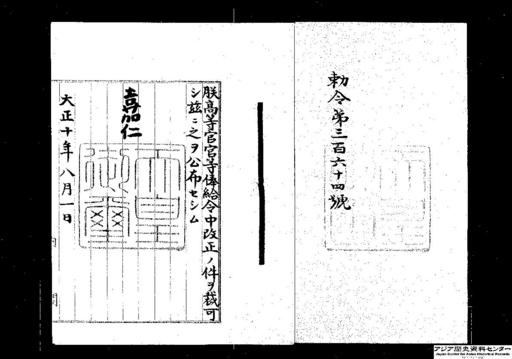 勅令第三百六十四號
朕高等官官等俸給令中改正ノ件ヲ裁可
シ茲ニ之ヲ公布セシム
嘉仁
大正十年八月一日
アジア歴史資料センター
Japan Center for Asian Historical Records